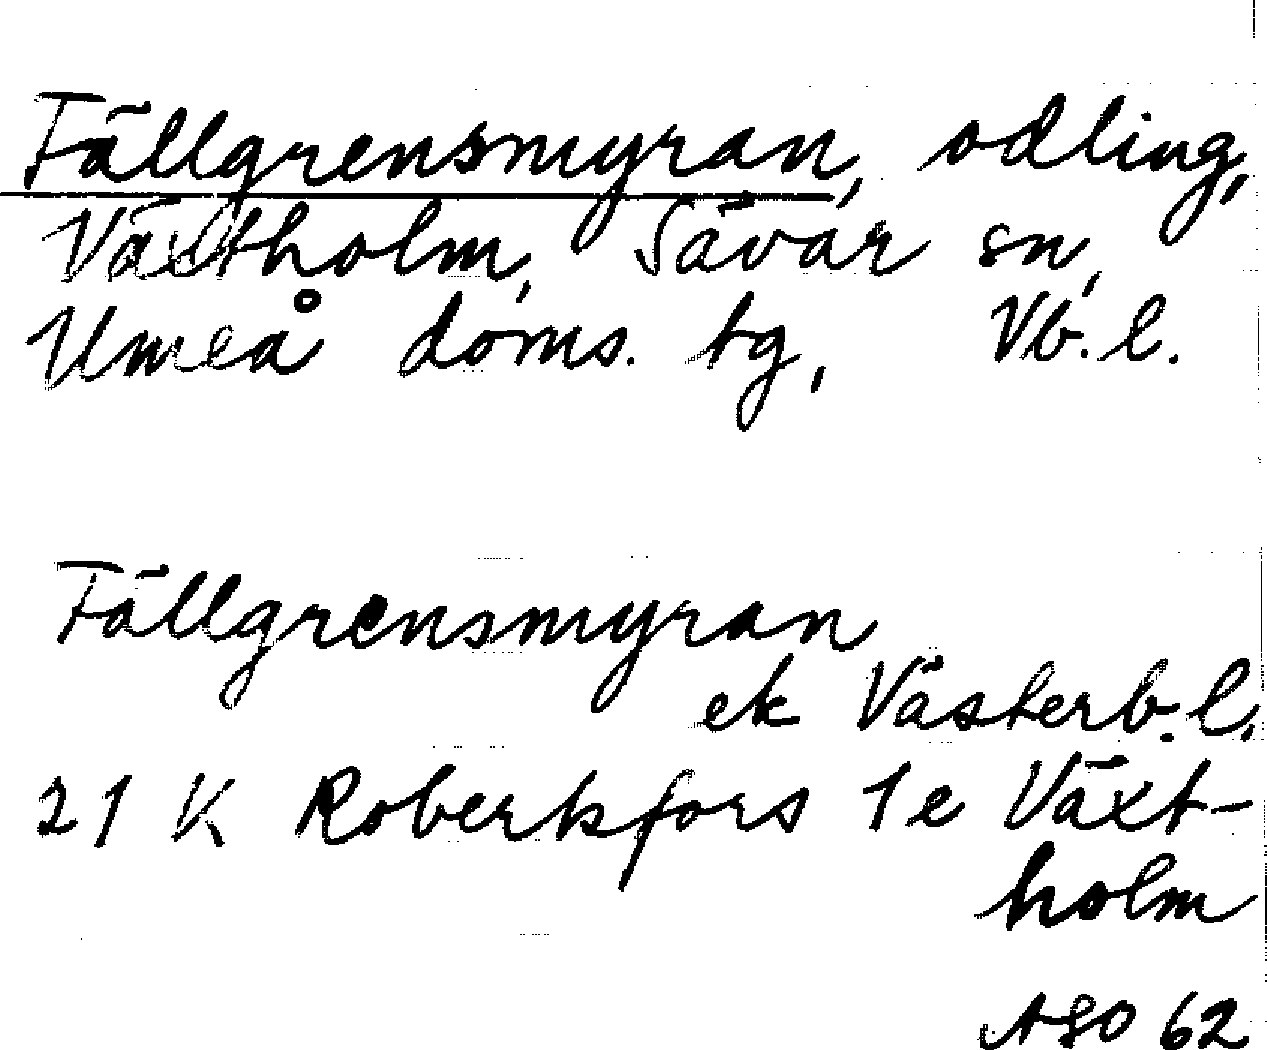 Fällgrensmyran, odling,
Växtholm, Sävar sn,
Umeå doms. tg, Vb. l.
Fällgrensmyran
ek Västerb. l.
21 K Robertsfors 1e Växt-
holm
ASO 62